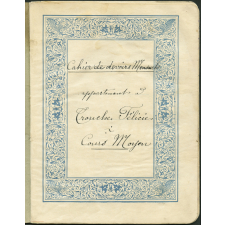 Cahier de devoirs Mensuels
appartenant à
Tronche Félicie
à
Cours Moyen